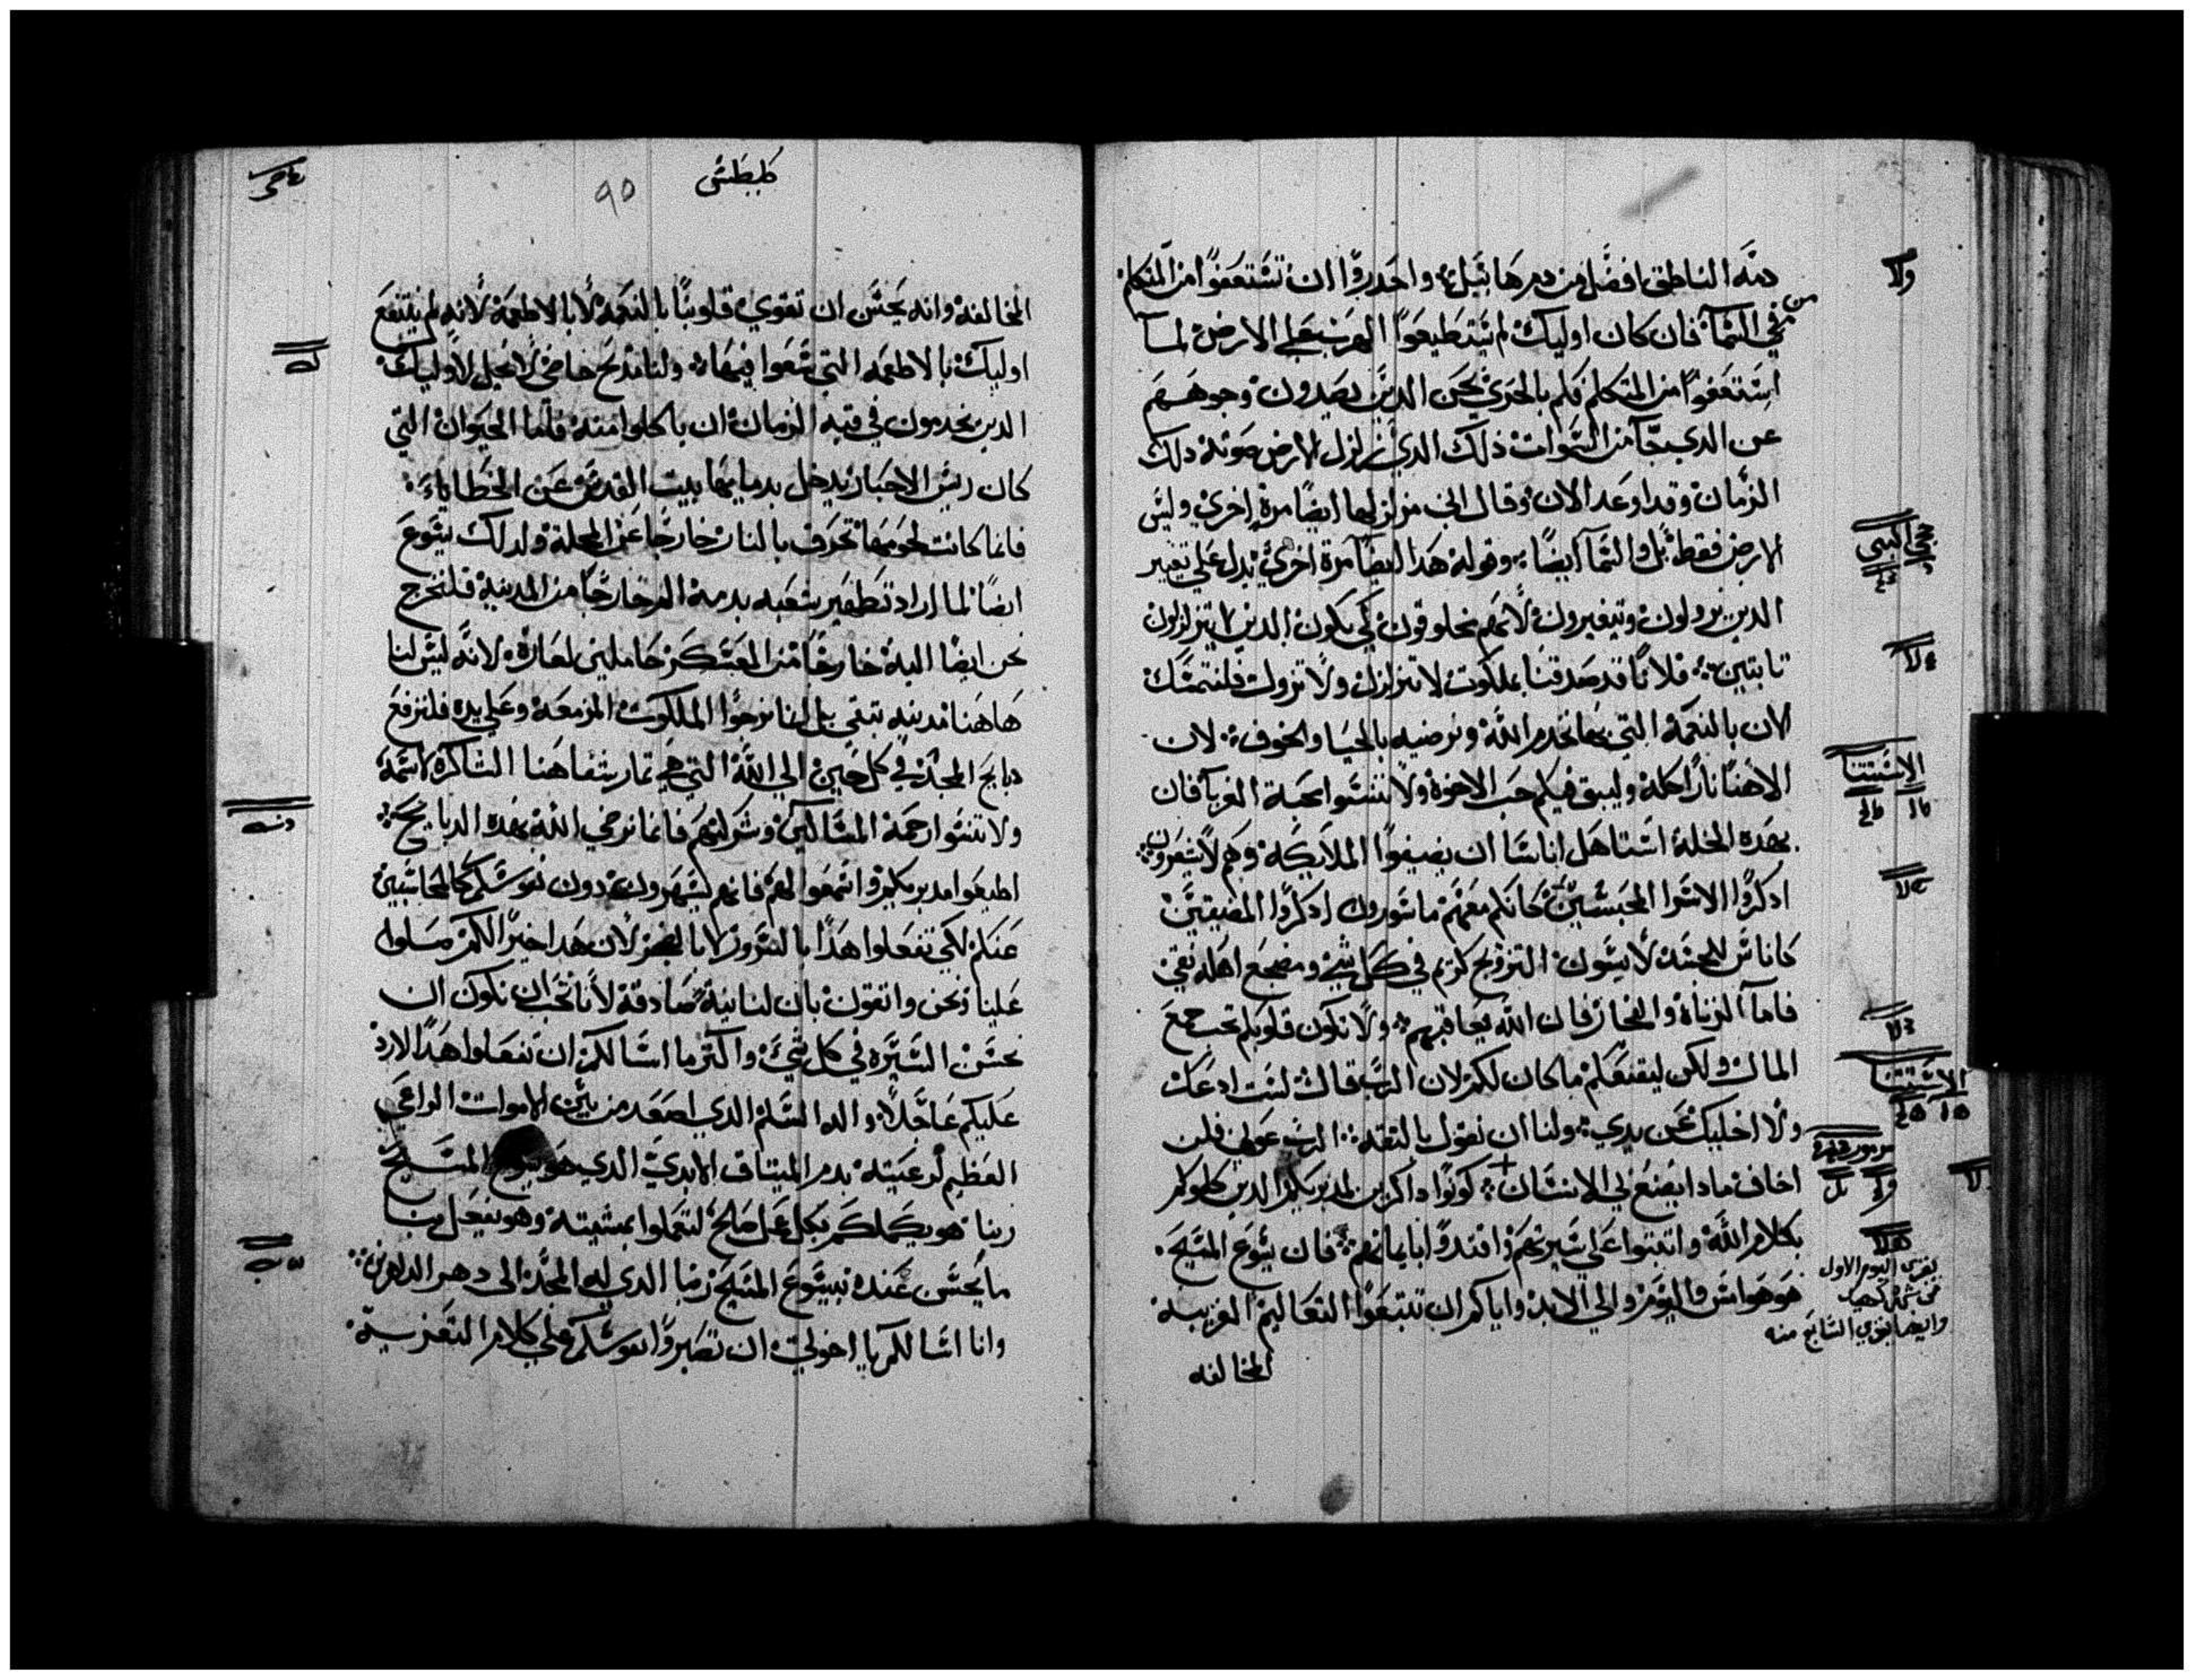 دمه الناطق افضل من دم هابيل واحدروا ان تستعفوا من المتكلم
من في السما فان كان اوليك لم يستطيعوا الهرب على الارض لما
استعفوا من المتكلم فكم بالحري نحن الدين يصدون وجوههم
عن الدي جا من السموات ذلك الدي زلزل الارض صوته دلك
الزمان وقد اوعد الان وقال اني مزلزلها ايضا مرة اخري وليس
الارض فقط بل والسما ايضا وقوله هدا ايضا مرة اخري يدل على تغيير
الدين يزولون ويتغيرون لانهم مخلوقون كي يكون الدين لا يتزلزلون
تابتين فلانا قد صدقنا بملكوت لا تتزلزل ولا تزول فلنتمسك
الان بالنعمة التي بها نخدم الله ونرضيه بالحيا والخوف لان
الاهنا نارا اكلة وليبق فيكم حب الاخوة ولا تنسوا محبة الغربا فان
بهده الخلة استاهل اناسا ان يضيفوا الملايكة وهم لا يشعرون
ادكروا الاسرا المحبسين كانكم معهم ماسورون ادكروا المضيقين
كاناس للجسد لابسون التزويج كريم في كل شي ومضجع اهله نقي
فاما الزناة والفجار فان الله يعاقبهم ولا تكون قلوبكم تحب جمع
المال ولكن ليقنعكم ما كان لكم لان الرب قال لست ادعك
ولا اخليك عن يدي ولنا ان نقول بالتقة الرب عوني فلن
اخاف مادا يصنع بي الانسان كونوا داكرين لمدبريكم الدين كلموكم
بكلام الله واتبتوا على سيرتهم واقتدوا بايمانهم فان يسوع المسيح
هو هو امس واليوم والي الابد واياكم ان تتبعوا التعاليم الغريبة
المخالفه
حجي النبي
الاستتنا
الاستتنا
مزمور
يقري اليوم الاول
من شهر كيهك
وايضا يقري السابع منه
90
المخالفة وانه يحسن ان تقوي قلوبنا بالنعمة لا بالاطعمة لانه لم ينتفع
اوليك بالاطعمه التي سعوا فيها ولنا مدبح خاص لا يحل لاوليك
الدين يخدمون في قبه الزمان ان ياكلوا منه فاما الحيوان التي
كان ريس الاحبار يدخل بدمايها بيت القدس عن الخطايا
فانما كانت لحومها تحرق بالنار خارجا عن المحلة ولدلك يسوع
ايضا لما اراد تطهير شعبه بدمه الم خارجا من المدينة فلنخرج
نحن ايضا اليه خارجا من المعسكر حاملين لعاره لانه ليس لنا
هاهنا مدينه تبقي بل انا نرجوا الملكوت المزمعة وعلي يده فلنرفع
دبايح المجد في كل حين الي الله التي هي تمار شفاهنا الشاكرة لاسمه
ولا تنسوا رحمة المساكين وشركتهم فانما نرضي الله بهده الدبايح
اطيعوا مدبريكم واسمعوا لهم فانهم يسهرون دون نفوسكم كالمحاسبين
عنكم لكي تفعلوا هدا بالسرور لا بالضجر لان هدا خيرا لكم صلوا
علينا نحن واتقون بان لنا نية صادقة لانا نحب ان نكون ان
نحسن السيرة في كل شي واكتر ما اسالكم ان تفعلوا هدا لارد
عليكم عاجلا واله السلم الدي اصعد من بين الاموات الراعي
العظيم لرعيته بدم الميتاق الابدي الدي هو يسوع المسيح
ربنا هو يكملكم بكل عمل صالح لتعملوا بمشيته وهو يفعل بنا
ما يحسن عنده بيسوع المسيح ربنا الدي له المجد الى دهر الداهرين
وانا اسالكم يا اخوتي ان تصبروا نفوسكم على كلام التعزية